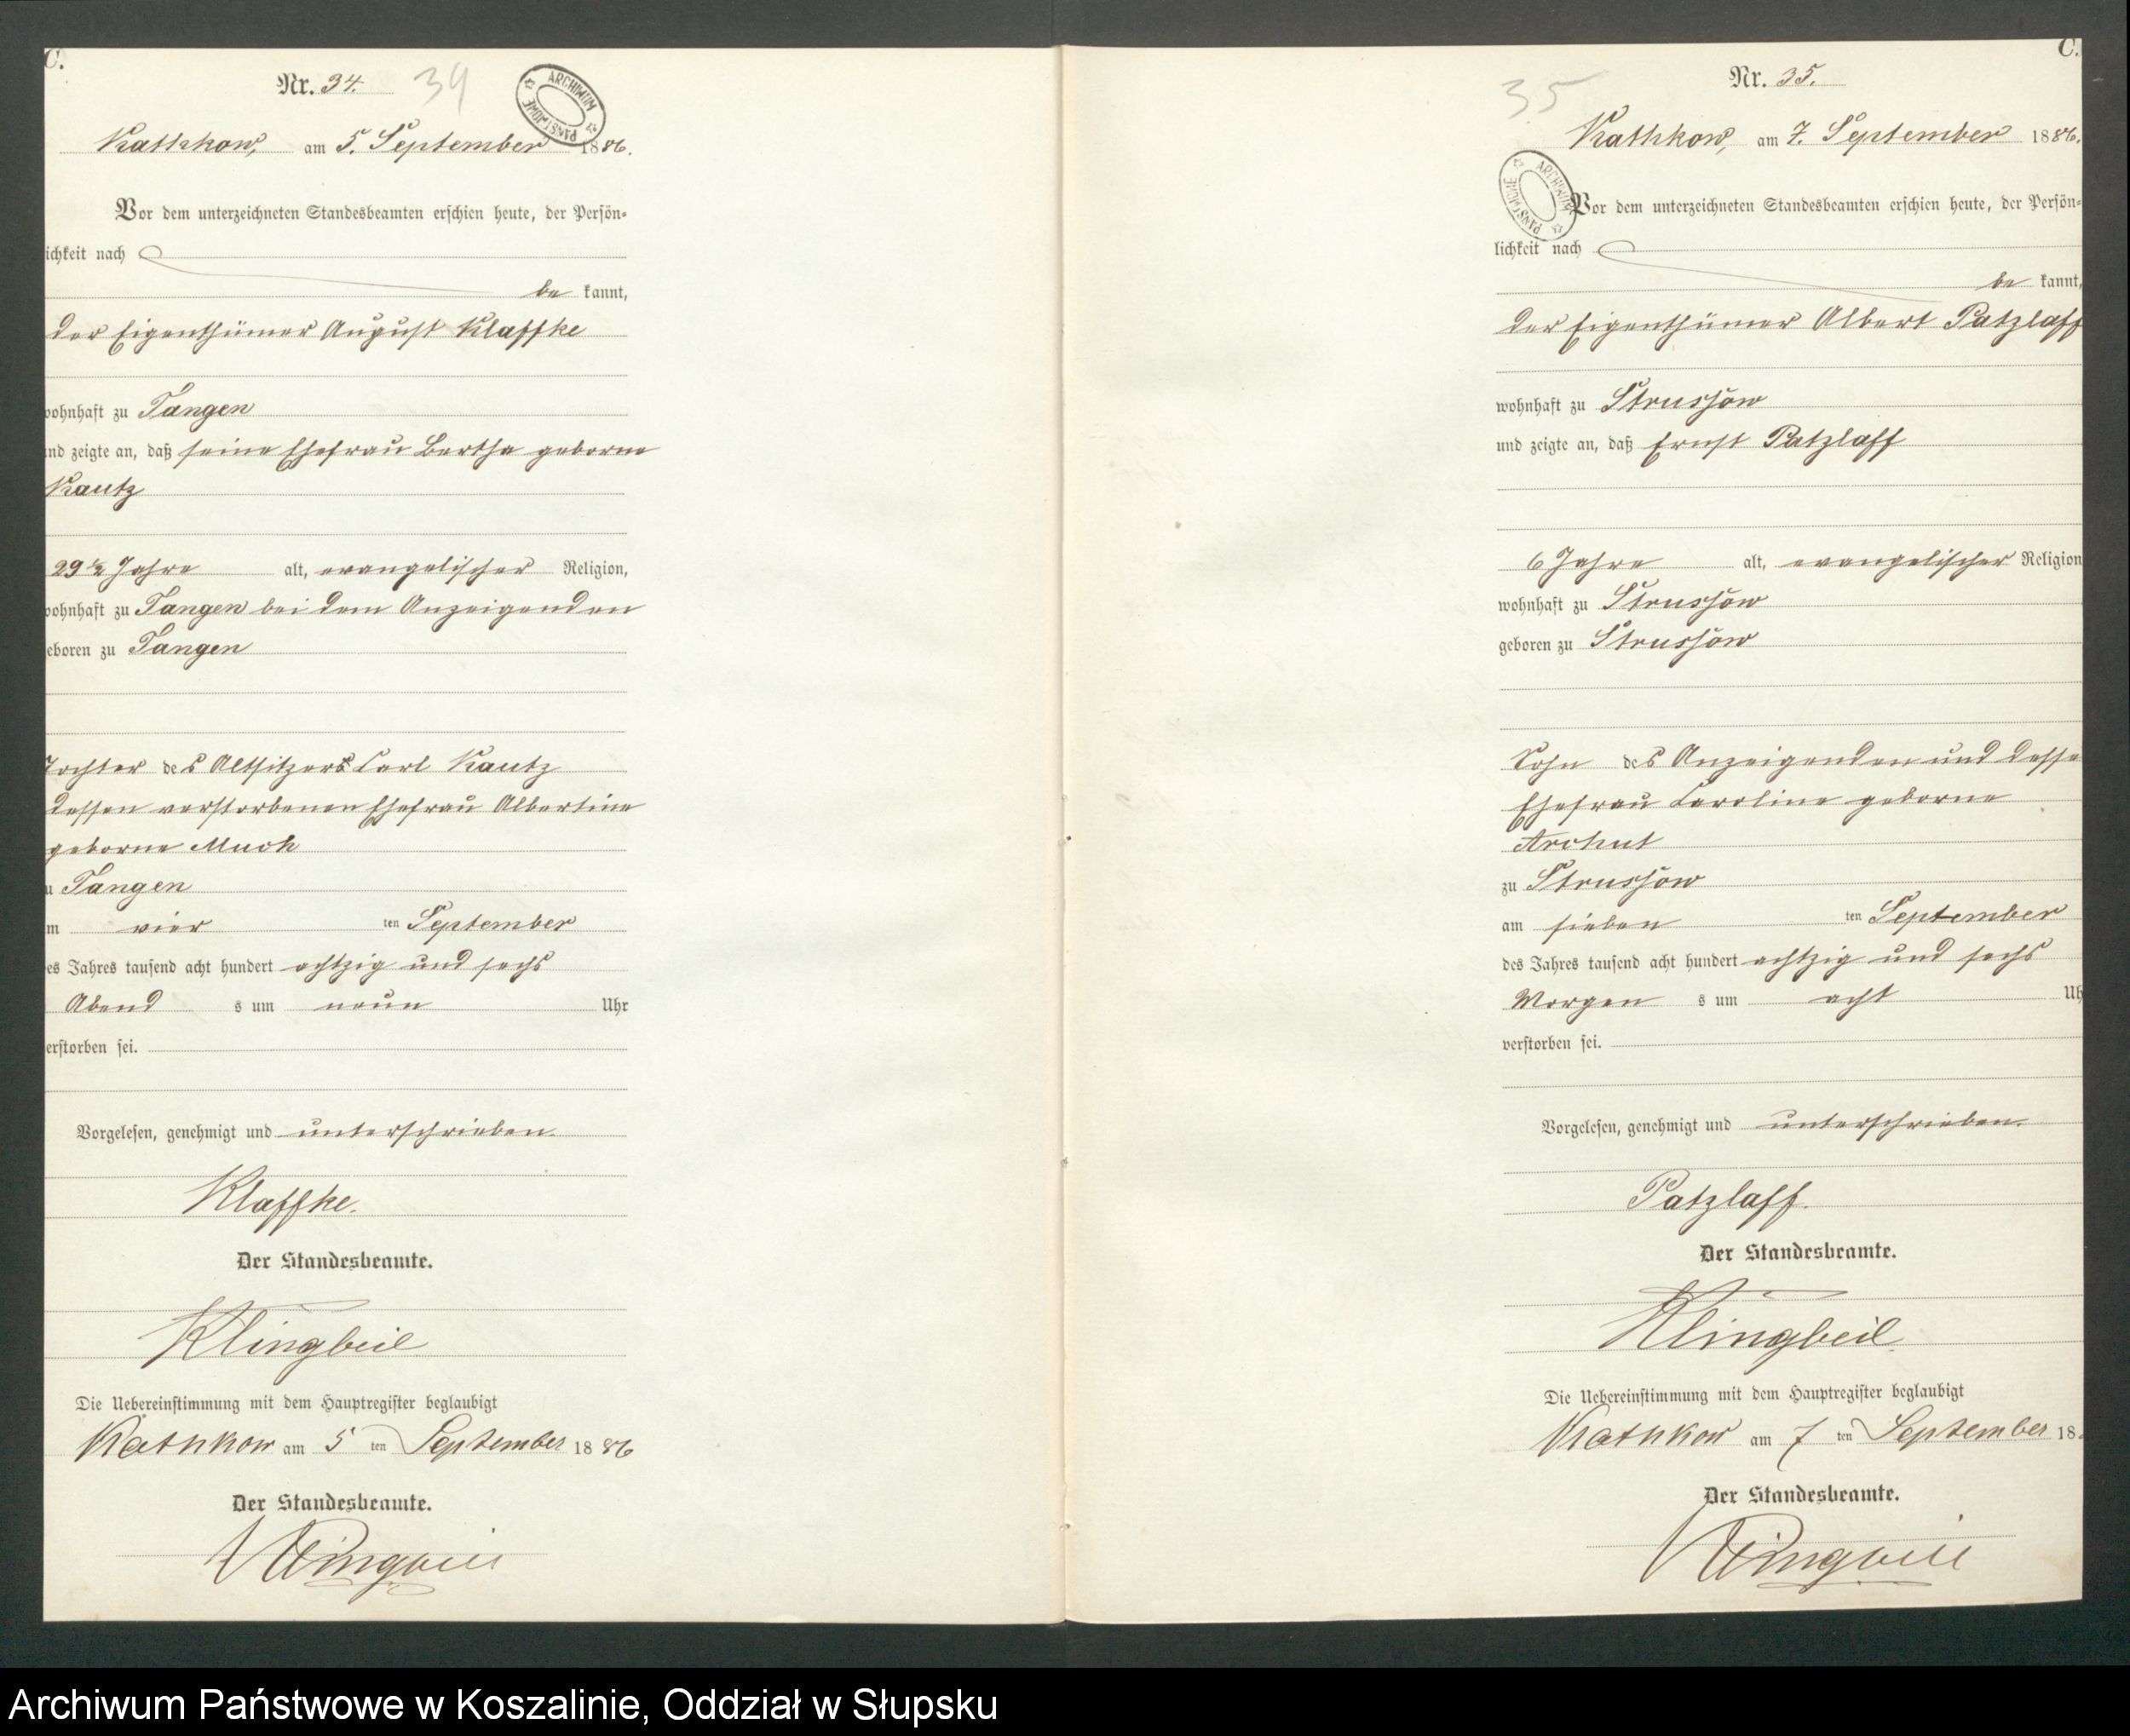 C.
Nr. 34.
34
ARCHIWUM PAŃSTWOWE
Kathkow, am 5. September 1886.
Vor dem unterzeichneten Standesbeamten erschien heute, der Persön-
ichkeit nach
be kannt,
der Eigenthümer August Klaffke
wohnhaft zu Tangen
und zeigte an, daß seine Ehefrau Bertha geborne
Kautz
29 1/2 Jahre alt, evangelischer Religion,
wohnhaft zu Tangen bei dem Anzeigenden
eboren zu Tangen
Tochter des Altsitzers Carl Kautz
dessen verstorbenen Ehefrau Albertine
geborne Much
u Tangen
m vier ten September
es Jahres tausend acht hundert achtzig und sechs
Abend s um neun Uhr
erstorben sei.
Vorgelesen, genehmigt und unterschrieben.
Klaffke.
Der Standesbeamte.
Klingbeil
Die Uebereinstimmung mit dem Hauptregister beglaubigt
Kathkow am 5 ten September 1886
Der Standesbeamte.
Klingbeil
C.
Nr. 35.
35
ARCHIWUM PAŃSTWOWE
Kathkow, am 7. September 1886.
Vor dem unterzeichneten Standesbeamten erschien heute, der Persön-
lichkeit nach
be kannt,
der Eigenthümer Albert Patzlaff
wohnhaft zu Strussow
und zeigte an, daß Ernst Patzlaff
6 Jahre alt, evangelischer Religion
wohnhaft zu Strussow
geboren zu Strussow
Sohn des Anzeigenden und desse
Ehefrau Caroline geborne
Archut
zu Strussow
am sieben ten September
des Jahres tausend acht hundert achtzig und sechs
Morgen s um acht Uh
verstorben sei.
Vorgelesen, genehmigt und unterschrieben.
Patzlaff.
Der Standesbeamte.
Klingbeil
Die Uebereinstimmung mit dem Hauptregister beglaubigt
Kathkow am 7 ten September 18
Der Standesbeamte.
Klingbeil
Archiwum Państwowe w Koszalinie, Oddział w Słupsku